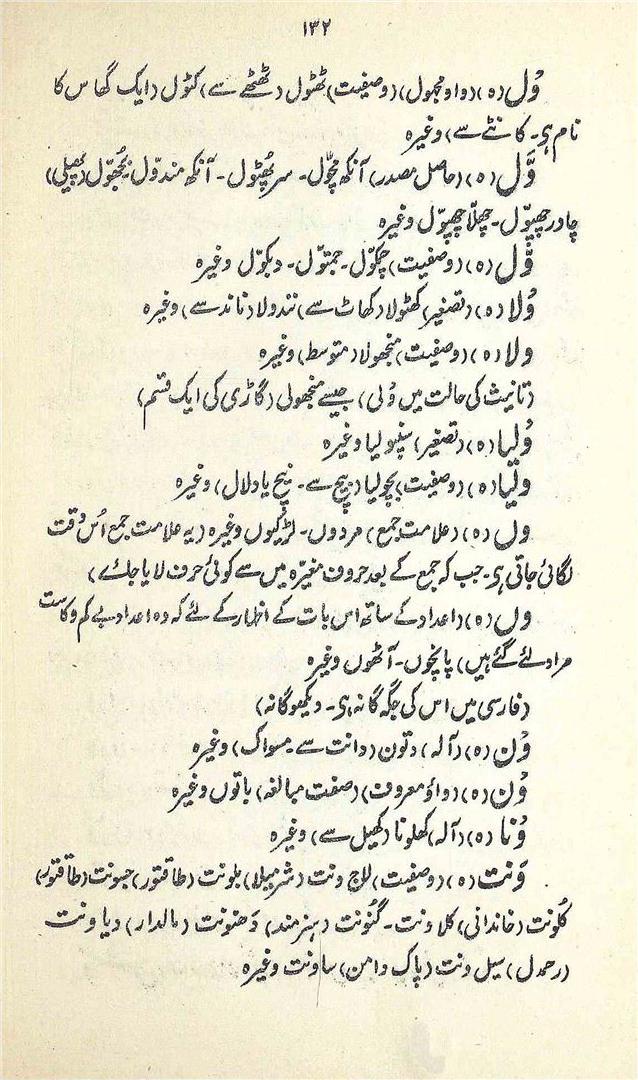 ۱۳۲
وُل (ہ) (واو مجہول) (وصفیت) ٹھٹول (ٹھٹھے سے) کٹول (ایک گھاس کا
نام ہی۔ کانٹے سے) وغیرہ
وَّل (ہ) (حاصل مصدر) آنکھ مچّول۔ سر پھٹول۔ آنکھ مندّول۔ بُجھوّل (پہیلی)
چادر چھپوّل۔ چھلّا چھپوّل وغیرہ
وَّل (ہ) (وصفیت) چکوّل۔ جمتوّل۔ دبکوّل وغیرہ
وُلا (ہ) (تصغیر) کھٹولا (کھاٹ سے) نندولا (ناند سے) وغیرہ
ولا (ہ) (وصفیت) منجھولا (متوسط) وغیرہ
(تانیث کی حالت میں وُلی) جیسے منجھولی (گاڑی کی ایک قسم)
وُلیا (ہ) (تصغیر) سنپولیا وغیرہ
ولیا (ہ) (وصفیت) بچولیا (بیچ سے۔ بیچ یا دلال) وغیرہ
وں (ہ) (علامت جمع) مردوں۔ لڑکیوں وغیرہ (یہ علامت جمع اُس وقت
لگائی جاتی ہی۔ جب کہ جمع کے بعد حروف مغیّرہ میں سے کوئی حرف لایا جائے)
وں (ہ) (اعداد کے ساتھ اس بات کے اظہار کے لئے کہ وہ اعداد بے کم و کاست
مراد لئے گئے ہیں) پانچوں۔ آٹھوں وغیرہ
(فارسی میں اس کی جگہ گانہ ہی۔ دیکھو گانہ)
وُن (ہ) (آلہ) دتون (دانت سے۔ مسواک) وغیرہ
وُن (ہ) (واؤ معروف) (صفت مبالغہ) باتوں وغیرہ
وُنا (ہ) (آلہ) کھلونا (کھیل سے) وغیرہ
وَنت (ہ) (وصفیت) لاج ونت (شرمیلا) بلونت (طاقتور) جسونت (طاقتور)
کُلونت (خاندانی) کلاونت۔ گُنونت (ہنرمند) دَھنونت (مالدار) دیاونت
(رحمدل) سیل ونت (پاک دامن) ساونت وغیرہ